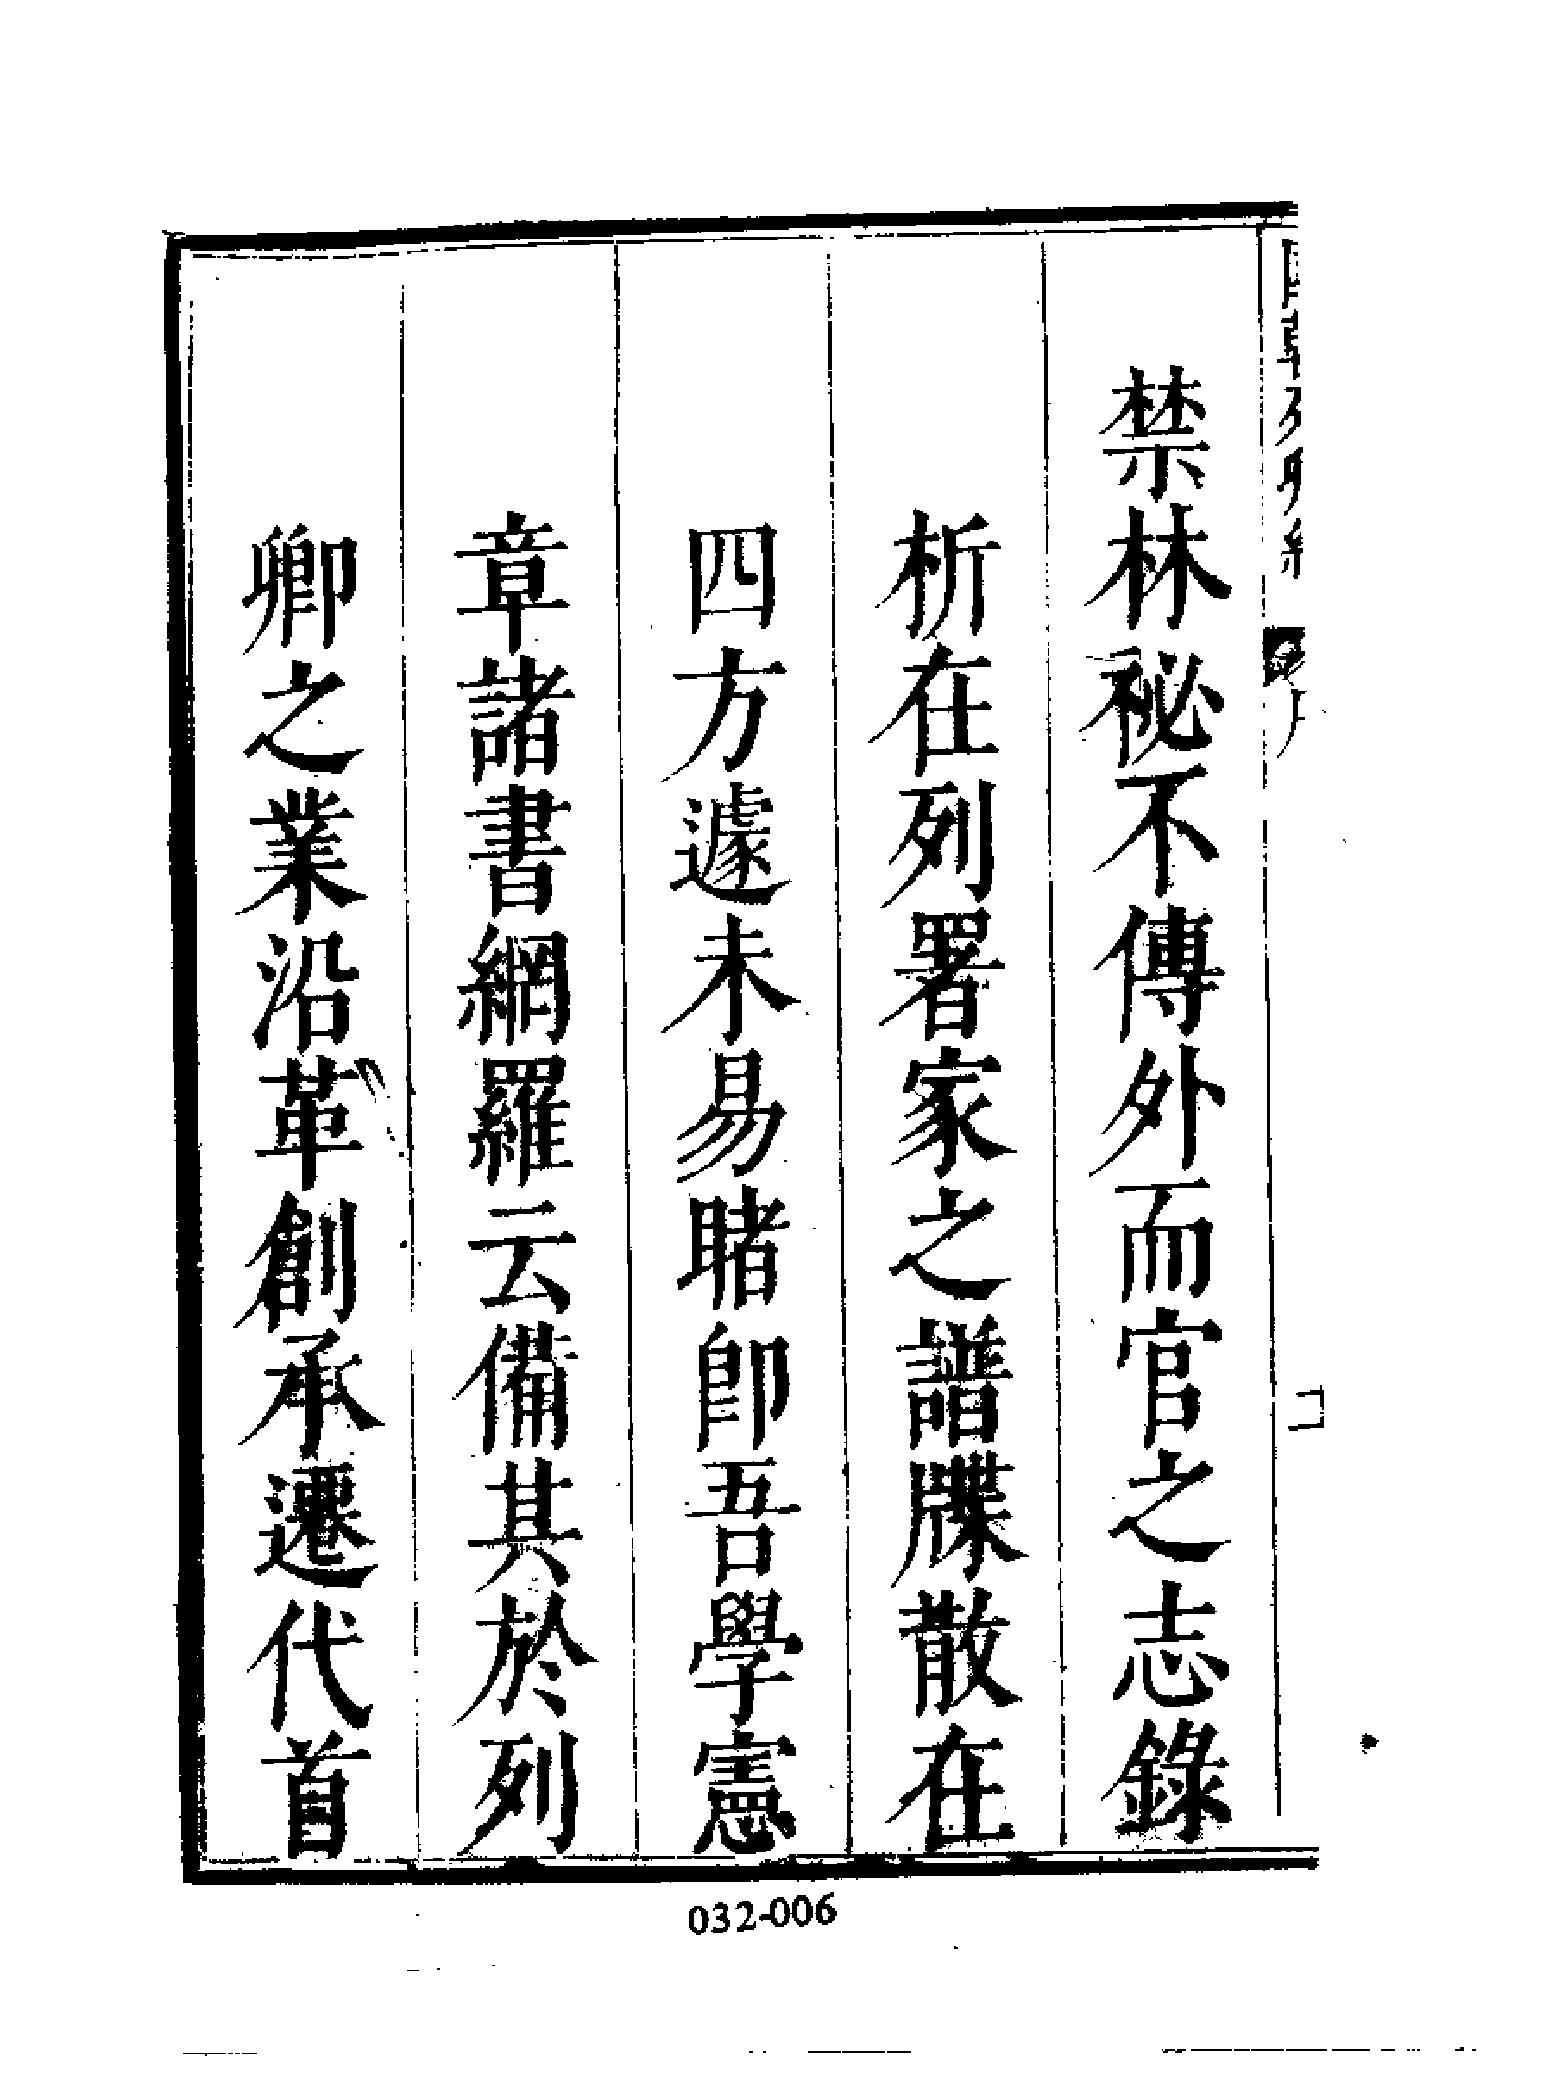 禁林祕不傳外而官之志錄
析在列署家之譜牒散在
四方遽未易睹卽吾學憲
章諸書網羅云備其於列
卿之業沿革創承遷代首
032-006